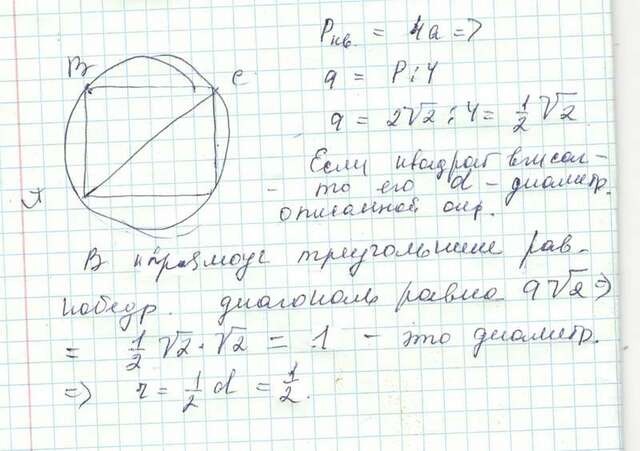 B
C
A
Pкв. = 4a =>
a = P:4
a = 2√2 : 4 = 1/2 √2
Если квадрат вписан –
– то его d – диаметр.
описанной окр.
В прямоуг треугольнике рав-
нобедр. диагональ равна a√2 =>
= 1/2 √2 · √2 = 1 – это диаметр.
=> r = 1/2 d = 1/2.